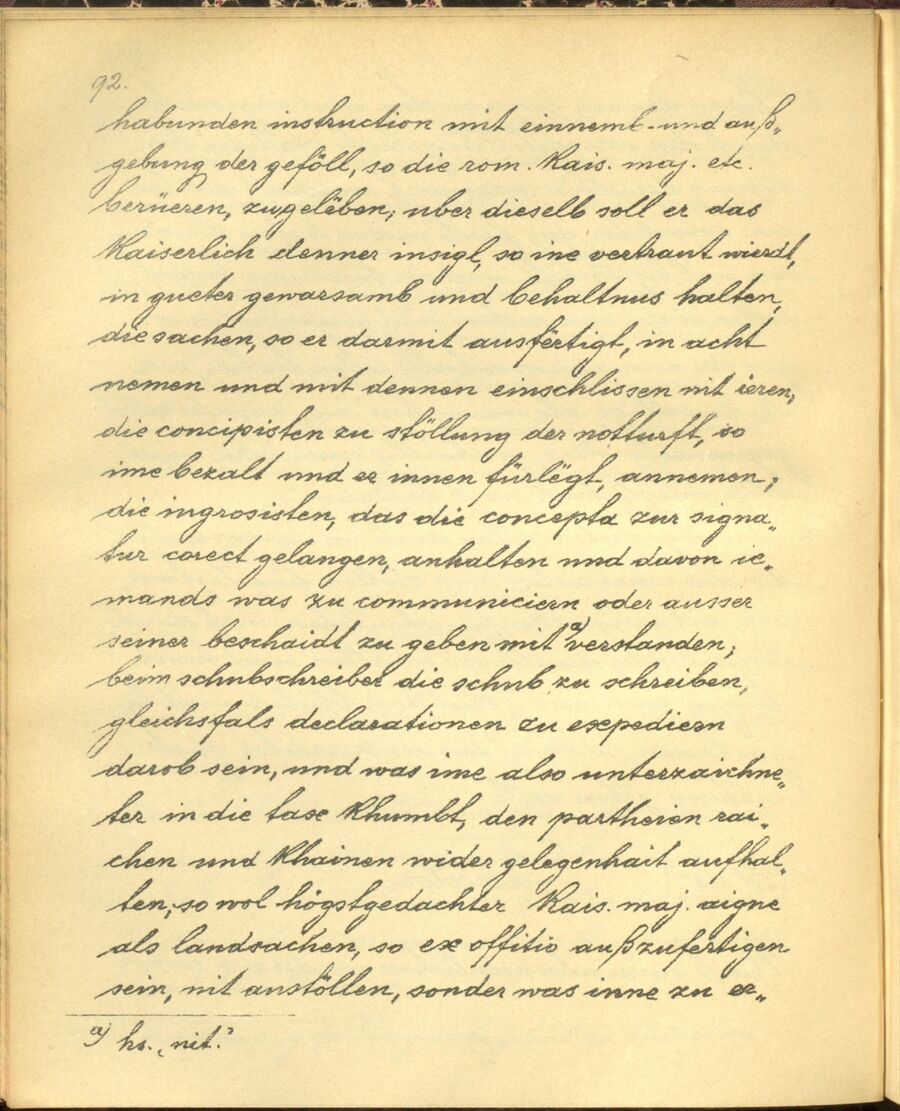 92.
habunden instruction mit einnemb- und auß„
gebung der geföll, so die rom. Kais. maj. etc.
berüeren, zugelëben; uber dieselb soll er das
Kaiserlich denner insigl, so ine vertraut wierdt,
in gueter gewarsamb und behaltnus halten,
die sachen, so er darmit ausfërtigt, in acht
nemen und mit dennen einschlissen nit ieren;
die concipisten zu stöllung der notturft, so
ime bezalt und er innen fürlëgt, annemen;
die ingrosisten, das die concepta zur signa„
tur corect gelangen, anhalten und davon ie„
mands was zu communiciern oder ausser
seiner beschaidt zu geben mit a) verstanden;
beim schubschreiber die schub zu schreiben,
gleichsfals declarationen zu expediern
darob sein, und was ime also unterzaichne„
ter in die tax Khumbt, den partheien rai„
chen und Khainen wider gelegenhait aufhal„
ten; so wol högstgedachter Kais. maj. aigne
als landsachen, so ex offitio außzufertigen
sein, nit anstöllen, sonder was inne zu er„
a) hs. „nit."